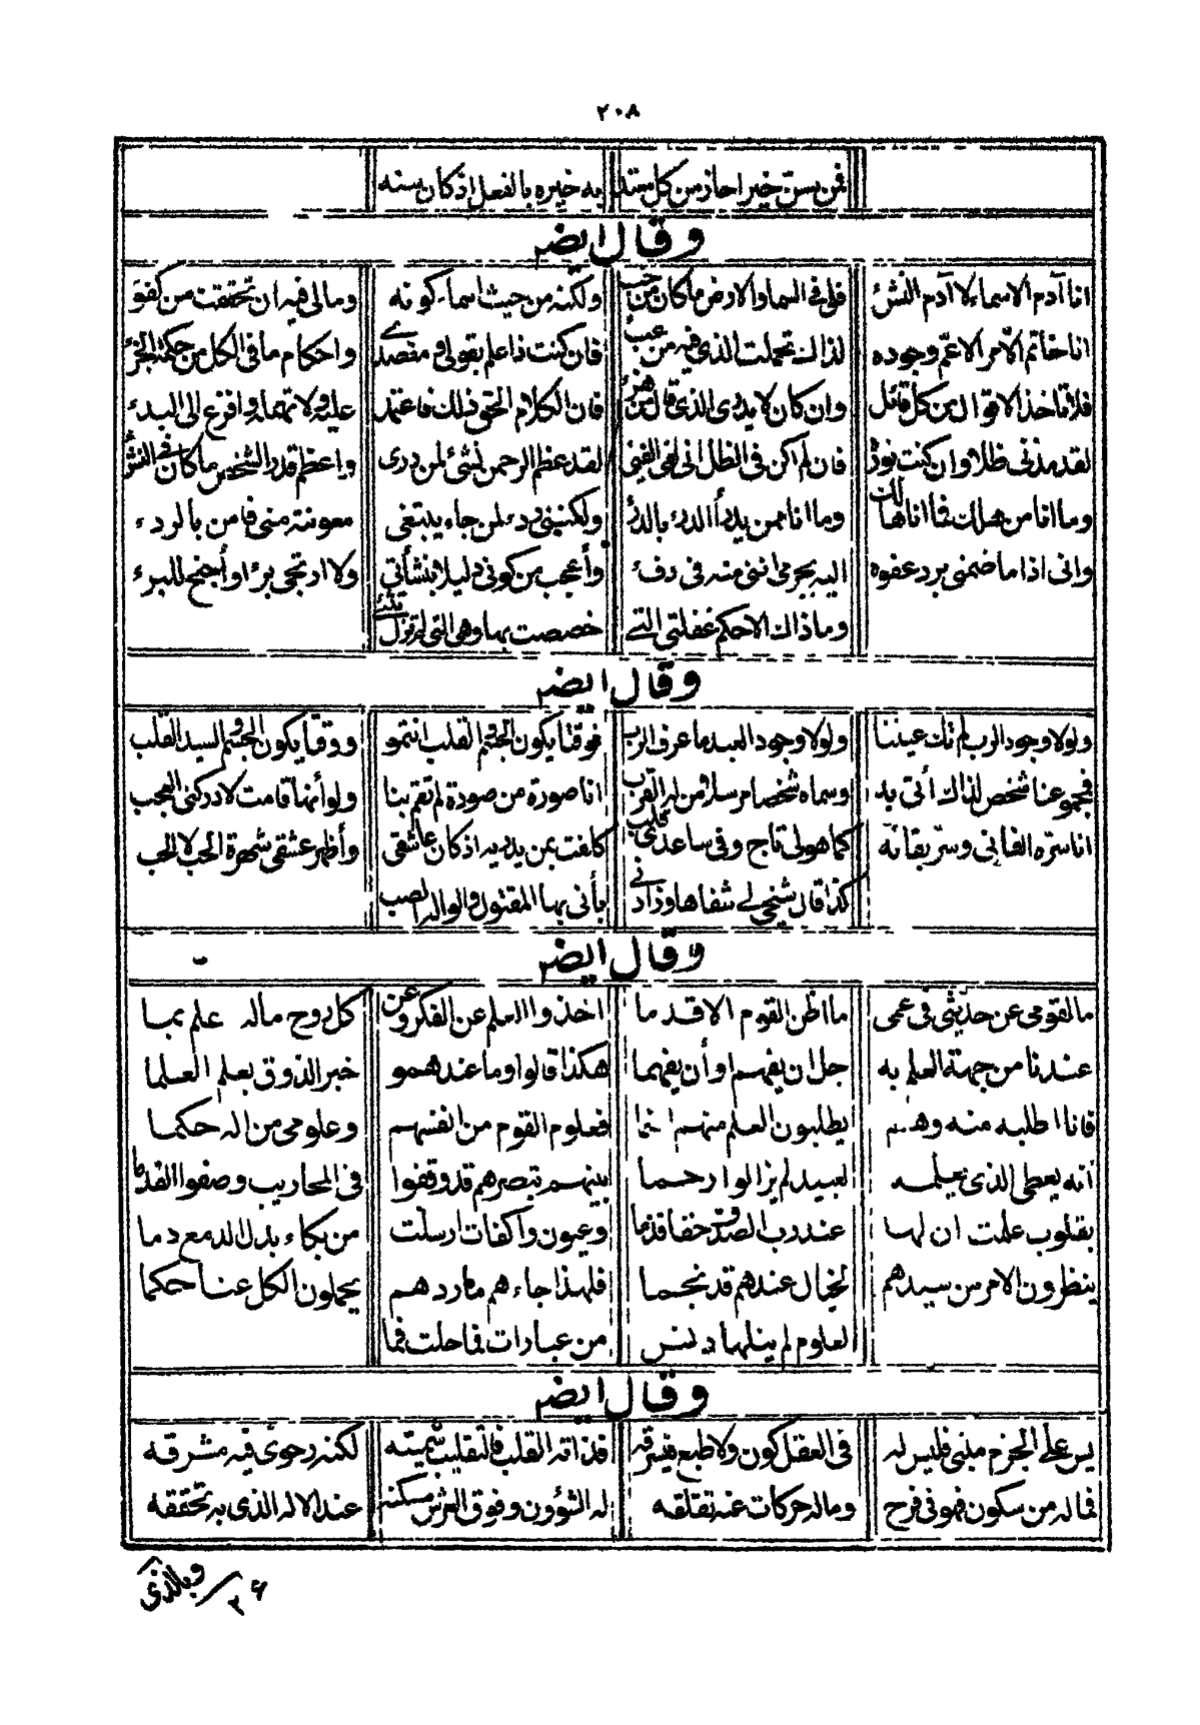 ٢٠٨
فمن يسن خيرا حاز من كل مهتد به خيره بالفعل اذ كان سنه
وقال ايضا
انا آدم الاسماء لا آدم النشئ فلى فى السما والارض ما كان من خبء ولكنه من حيث اسماء كونه ومالى فيه ان تحققت من كفو
انا خاتم الامر الاعم وجوده لذاك تحملت الذى فيه من عبء فان كنت ذا علم بقولى ومقصدى واحكام ما فى الكل من حكمة الجزء
فلا تأخذ الاقوال من كل قائل وان كان لا يدرى الذى قال من هزء فان الكلام الحق ذلك فاعتمد عليه ولا تهمله وافزع الى البدء
لقد مدنى ظلا وان كنت نوره فان لم اكن فى الظل انى لفى الفئ لقد عظم الرحمن نشئى لمن درى واعظم قدر الشخص ما كان فى النشء
وما انا من هلك فما انا هالك وما انا ممن يدرأ الدرء بالدرء ولكننى ردء لمن جاء يبتغى معونته منى فامن بالردء
وانى اذا ما ضمنى برد عفوه اليه بجرمى اننى منه فى دفء وأعجب من كونى دليلا بنشأتى ولا ارتجى برء او أجنح للبرء
وما ذاك الا حكم غفلتى التى خصصت بها وهى التى لم تزل
وقال ايضا
ولولا وجود الرب لم تك عيننا ولولا وجود العبد ما عرف الرب فوقتا يكون الجسم والقلب انتمو ووقتا يكون الجسم السيد القلب
فمجموعنا شخص لذاك أتى به وسماه شخصا مرسلا ومن له القرب انا صورة من صورة لم تقم بنا ولو أنها قامت لادركنى العجب
انا سره الفانى وسر بقائه كما هو لى تاج وفى ساعدى قلب كلفت بمن يدريه اذ كان عاشقى وأظهر عشقى شهرة الحب لا الحب
كذا قال شيخى لى شفاها وزادنى بأنى بها المقتول والواله الصب
وقال ايضا
ما لقومى عن حديثى فى عمى ما اظن القوم الا قدما اخذوا العلم عن الفكر وعن كل روح ماله علم بما
عندنا من جهة العلم به جل ان يفهم او أن يفهما هكذا قالوا وما عندهمو خبر الذوق بعلم العلما
فانا اطلبه منه وهم يطلبون العلم منهم انما فعلوم القوم من انفسهم وعلومى من اله حكما
انه يعطى الذى يعلمه لعبيد لم يزالوا رحما بينهم تبصرهم قد وقفوا فى المحاريب وصفوا القدما
بقلوب علمت ان لها عند رب الصدق حقا قدما وعيون واكفات ارسلت من بكاء بدل الدمع دما
ينظرون الامر من سيدهم لخيال عندهم قد نجما فلهذا جاءهم ما ردهم يحملون الكل عنا حكما
لعلوم لم ينلها دنس من عبارات فما حلت فما
وقال ايضا
يس على الجزم مبنى فليس له فى العقل كون ولا طبع فيسرقه فذاته القلب فالتقليب شيمته لكنه رحوى فيه مشرقه
فماله من سكون فهو فى فرح وماله حركات عنه تقلقه له الشؤون وفوق العرش مسكنه عند الاله الذى به تحققه
وبالذى
٢٦